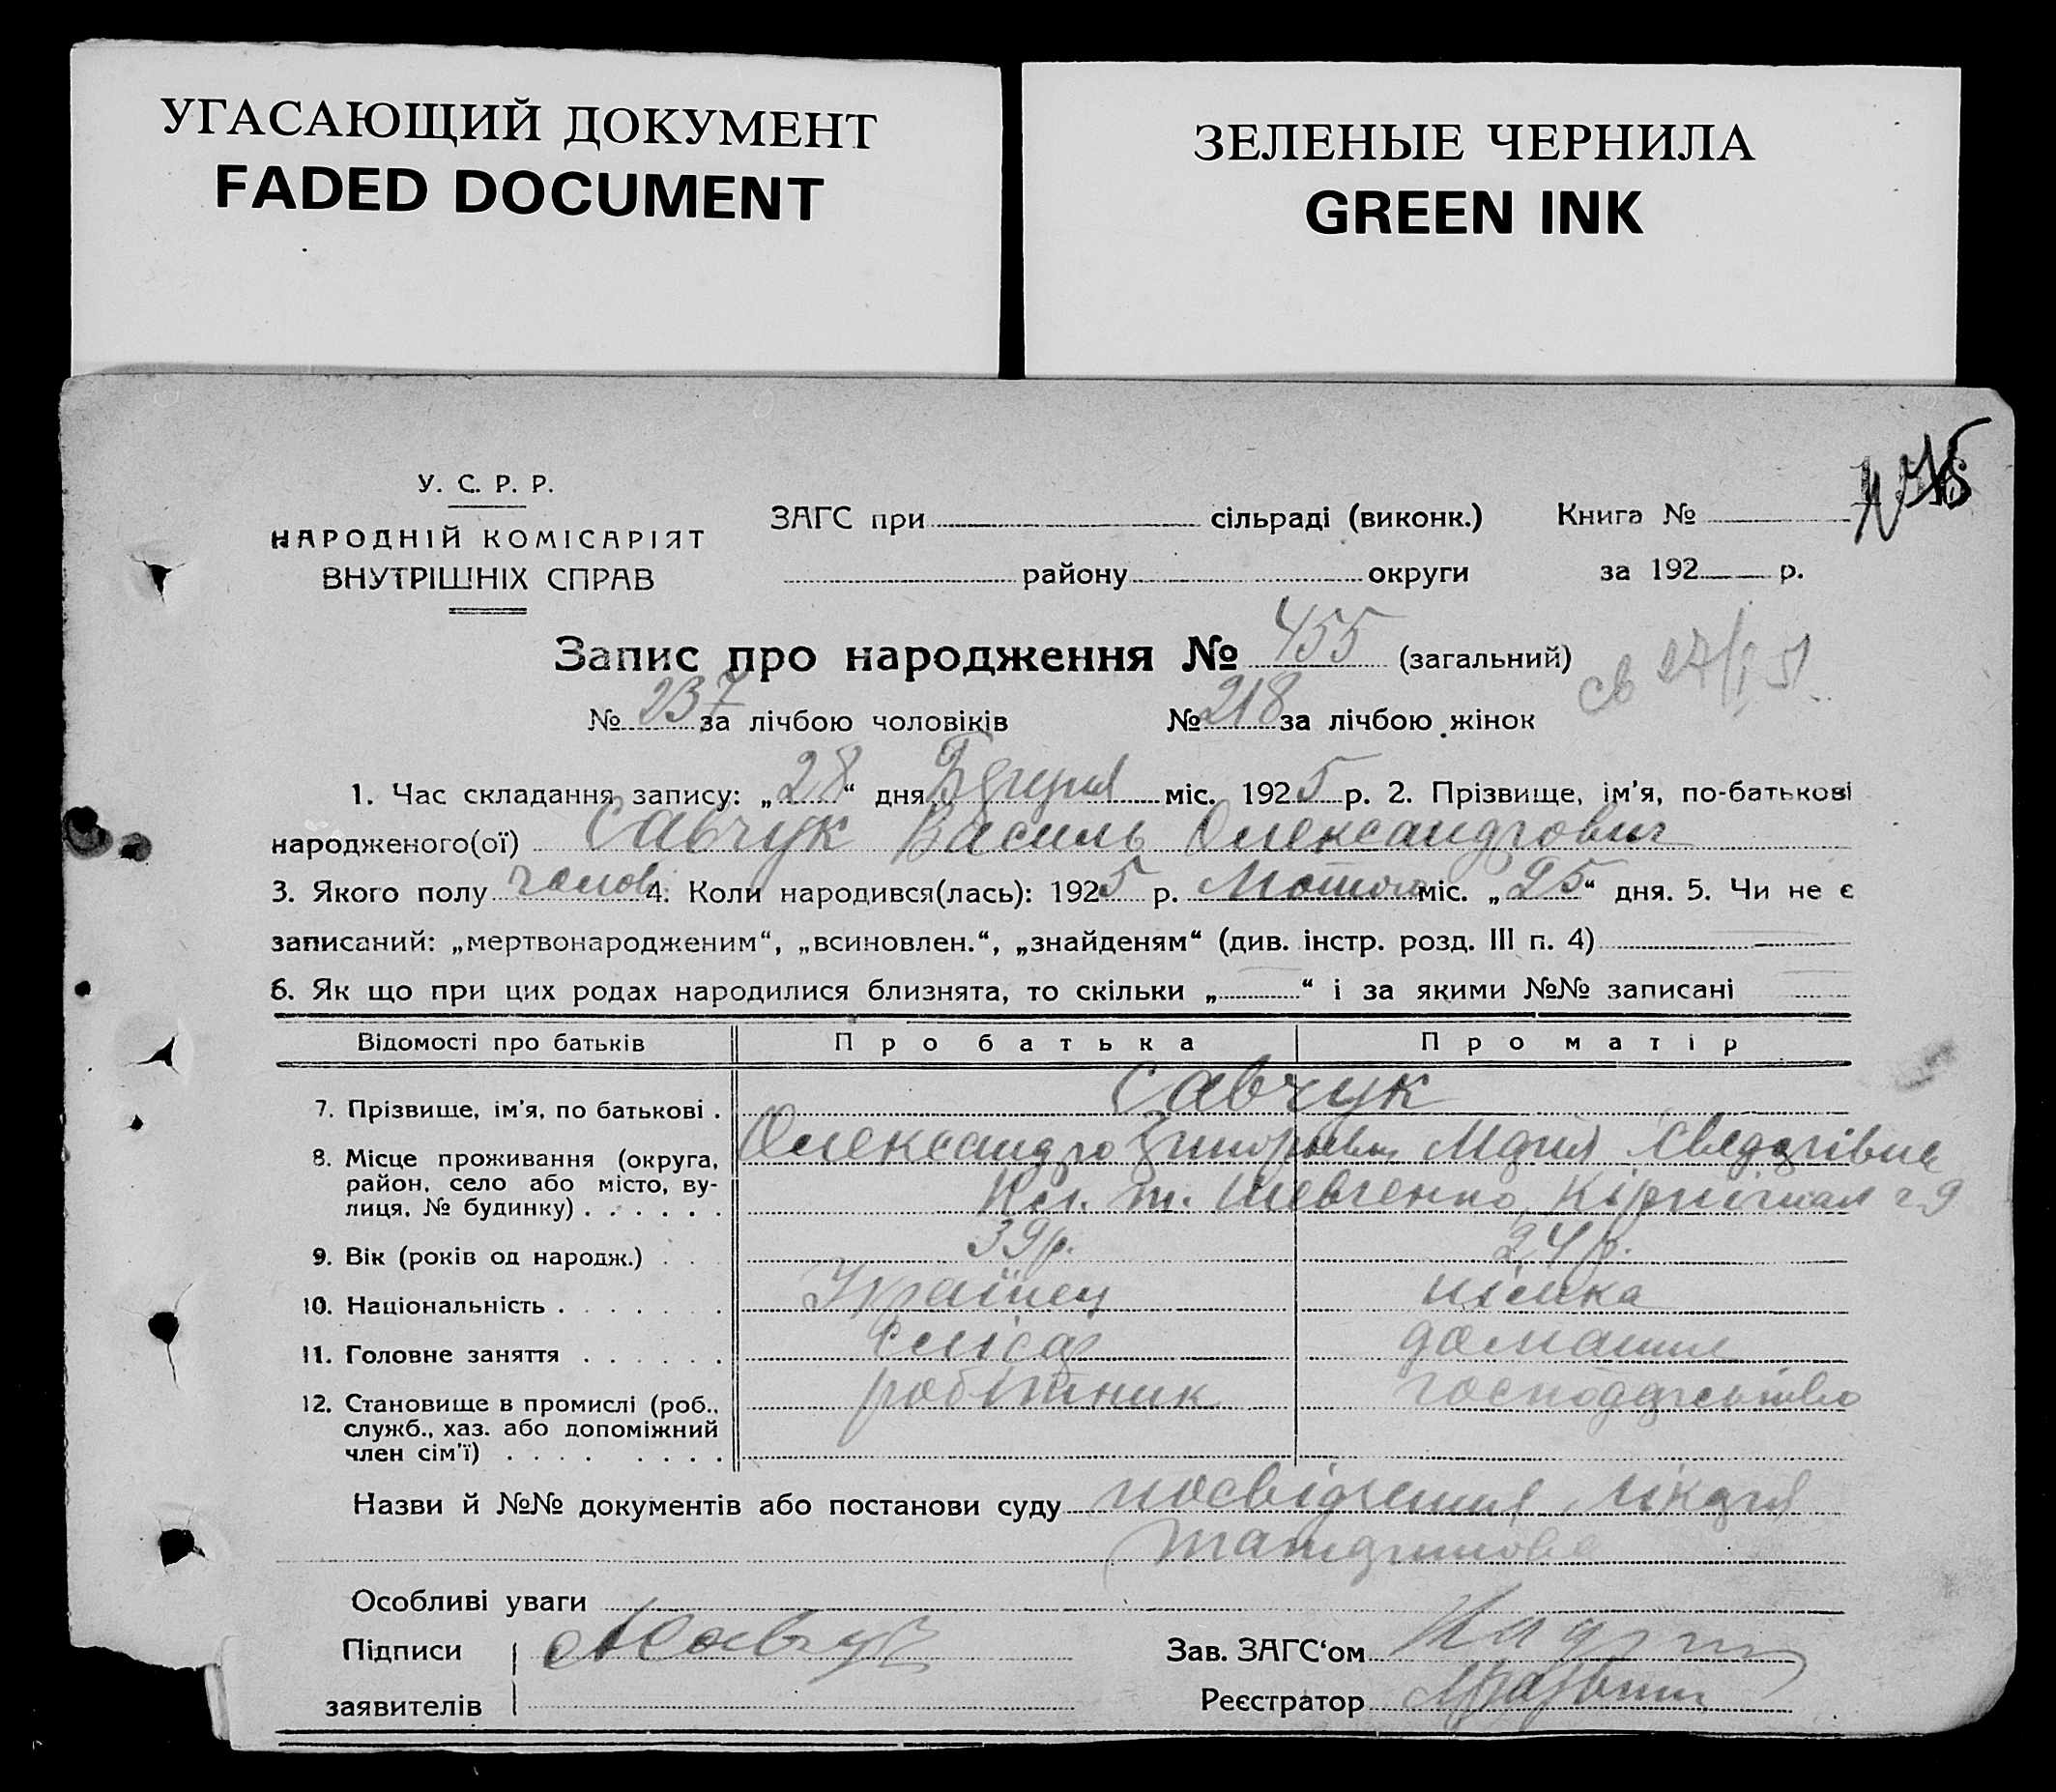 УГАСАЮЩИЙ ДОКУМЕНТ
FADED DOCUMENT
ЗЕЛЕНЫЕ ЧЕРНИЛА
GREEN INK
У. С. Р. Р.
НАРОДНІЙ КОМІСАРІЯТ
ВНУТРІШНІХ СПРАВ
ЗАГС при сільраді (виконк.) Книга №
району округи за 192 р.
Запис про народження № 455 (загальний)
№ 237 за лічбою чоловіків № 218 за лічбою жінок
1. Час складання запису: „28“ дня міс. 1925 р. 2. Прізвище, ім'я, по-батькові
народженого(ої) Савчук Василь Олександрович
3. Якого полу чолов. 4. Коли народився(лась): 1925 р. Лютого міс. „25“ дня. 5. Чи не є
записаний: „мертвонародженим“, „всиновлен.“, „знайденям“ (див. інстр. розд. III п. 4)
6. Як що при цих родах народилися близнята, то скільки „ “ і за якими №№ записані
Відомості про батьків Про батька Про матір
7. Прізвище, ім'я, по батькові . Савчук
Олександр Марія
8. Місце проживання (округа, район, село або місто, вулиця, № будинку) . . . . . . Шевченко
9. Вік (років од народж.) . . . 39 р. 24 р.
10. Національність . . . . . . . Українець німка
11. Головне заняття . . . . . . слюсар домашнє
12. Становище в промислі (роб., служб., хаз. або допоміжний член сім'ї) . . . . . . . . робітник господарство
Назви й №№ документів або постанови суду посвідчення лікаря
Особливі уваги
Підписи Зав. ЗАГС‘ом
заявителів Реєстратор